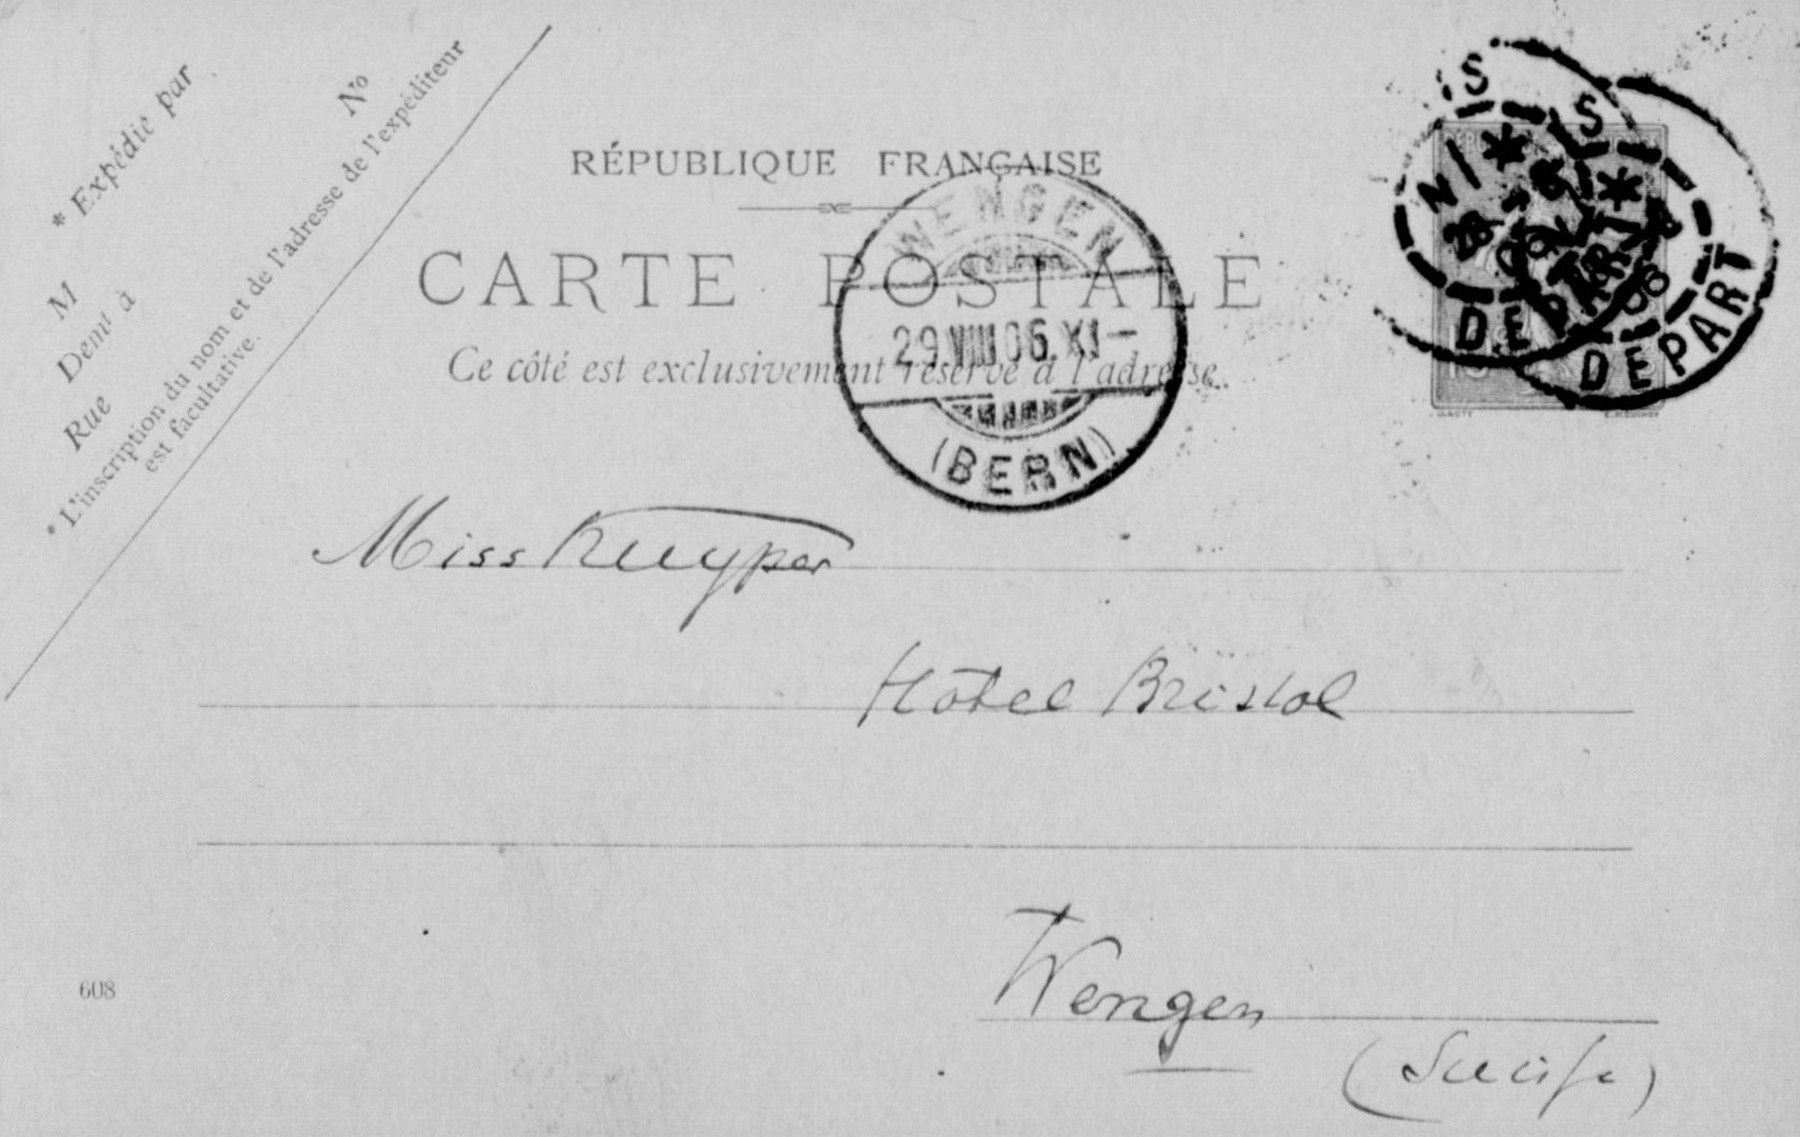 * Expédié par
Nº
M
Demt à
Rue
* L'inscription du nom et de l'adresse de l'expéditeur
est facultative.
RÉPUBLIQUE FRANÇAISE
CARTE POSTALE
Ce côté est exclusivement réservé à l'adresse.
WENGEN
29.VIII.06.XI-
(BERN)
DEPART
DEPART
Miss Kuyper
Hôtel Bristol
Wengen
(Suisse)
608